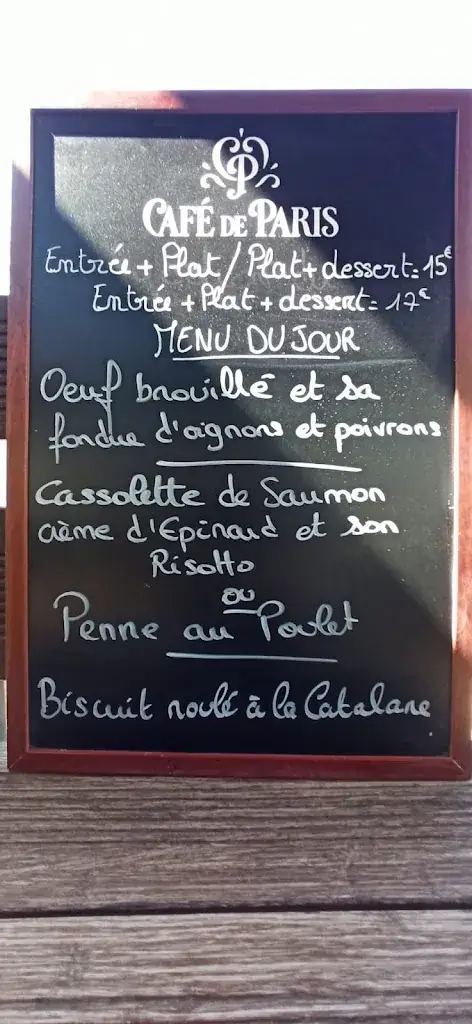 CP
CAFÉ DE PARIS
Entrée + Plat / Plat + dessert = 15€
Entrée + Plat + dessert = 17€
MENU DU JOUR
Oeuf brouillé et sa
fondue d'oignons et poivrons
Cassolette de Saumon
crème d'Epinard et son
Risotto
ou
Penne au Poulet
Biscuit roulé à la Catalane